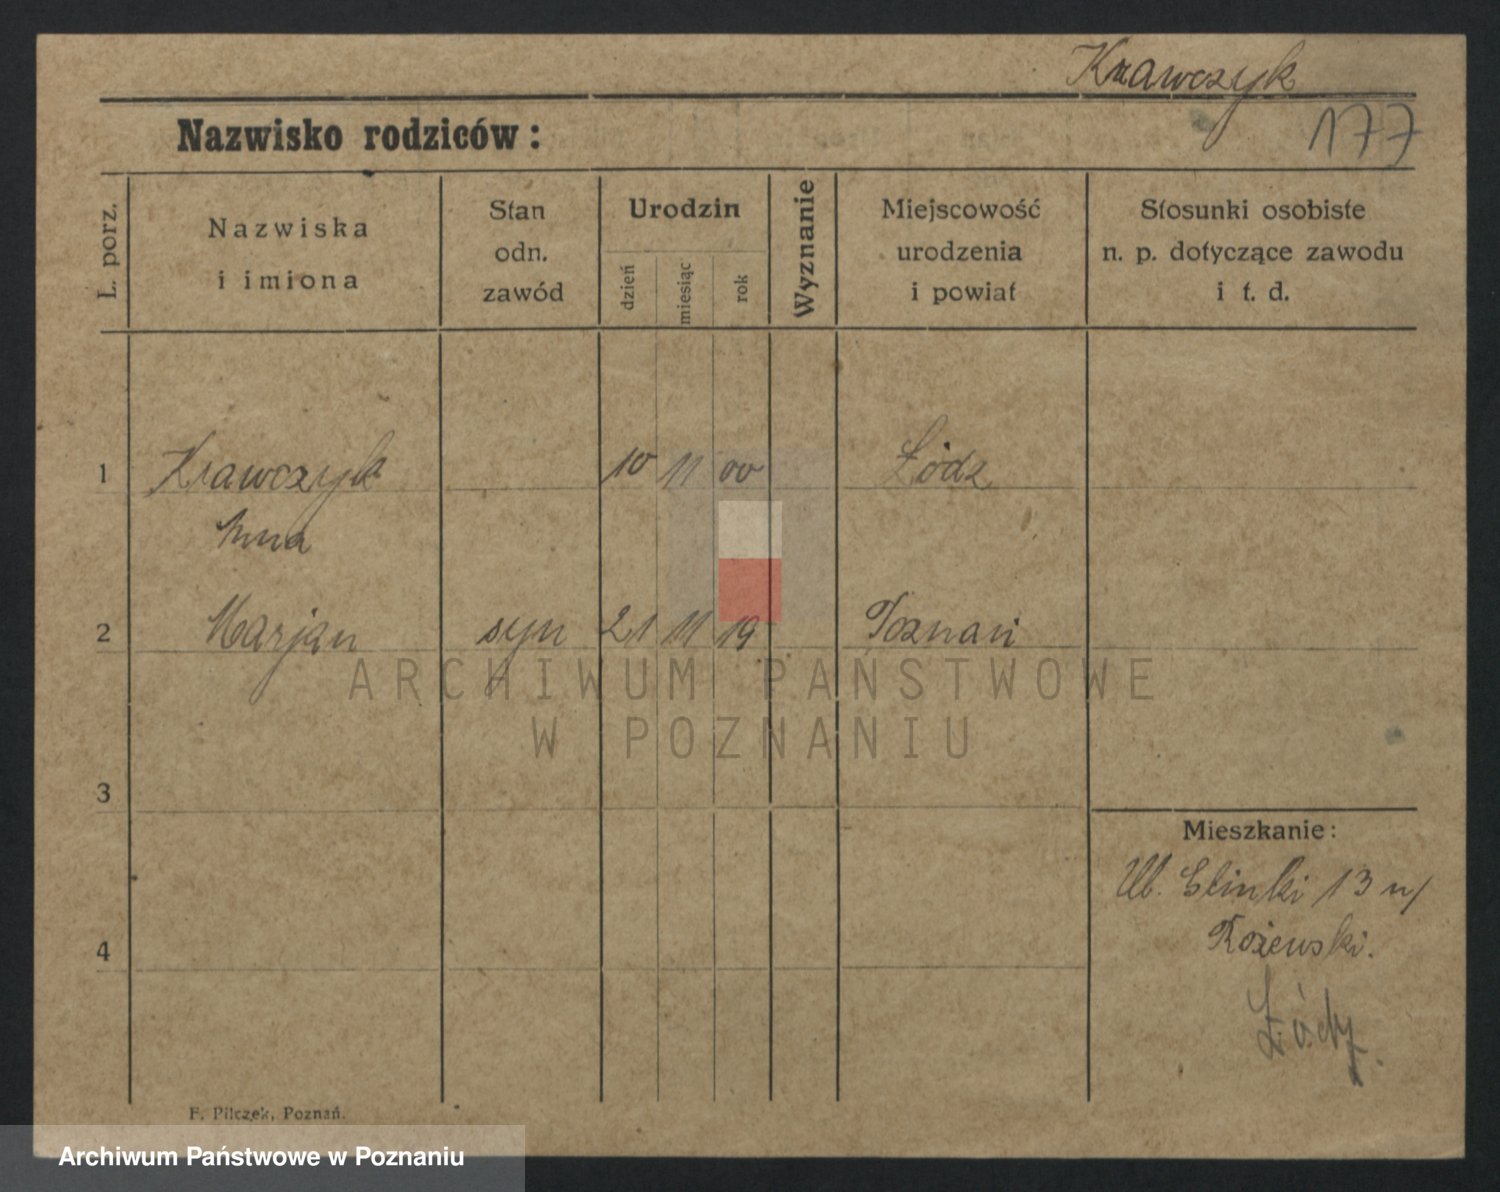 Krawczyk
177
Nazwisko rodziców:
L. porz.
Nazwiska
i imiona
Stan
odn.
zawód
Urodzin
dzień
miesiąc
rok
Wyznanie
Miejscowość
urodzenia
i powiat
Stosunki osobiste
n. p. dotyczące zawodu
i t. d.
1 Krawczyk 10 11 00 Łódz
Anna
2 Marjan syn 21 11 19 Poznań
ARCHIWUM PAŃSTWOWE
W POZNANIU
3
Mieszkanie:
Ul. 13
4
F. Pilczek, Poznań.
Archiwum Państwowe w Poznaniu